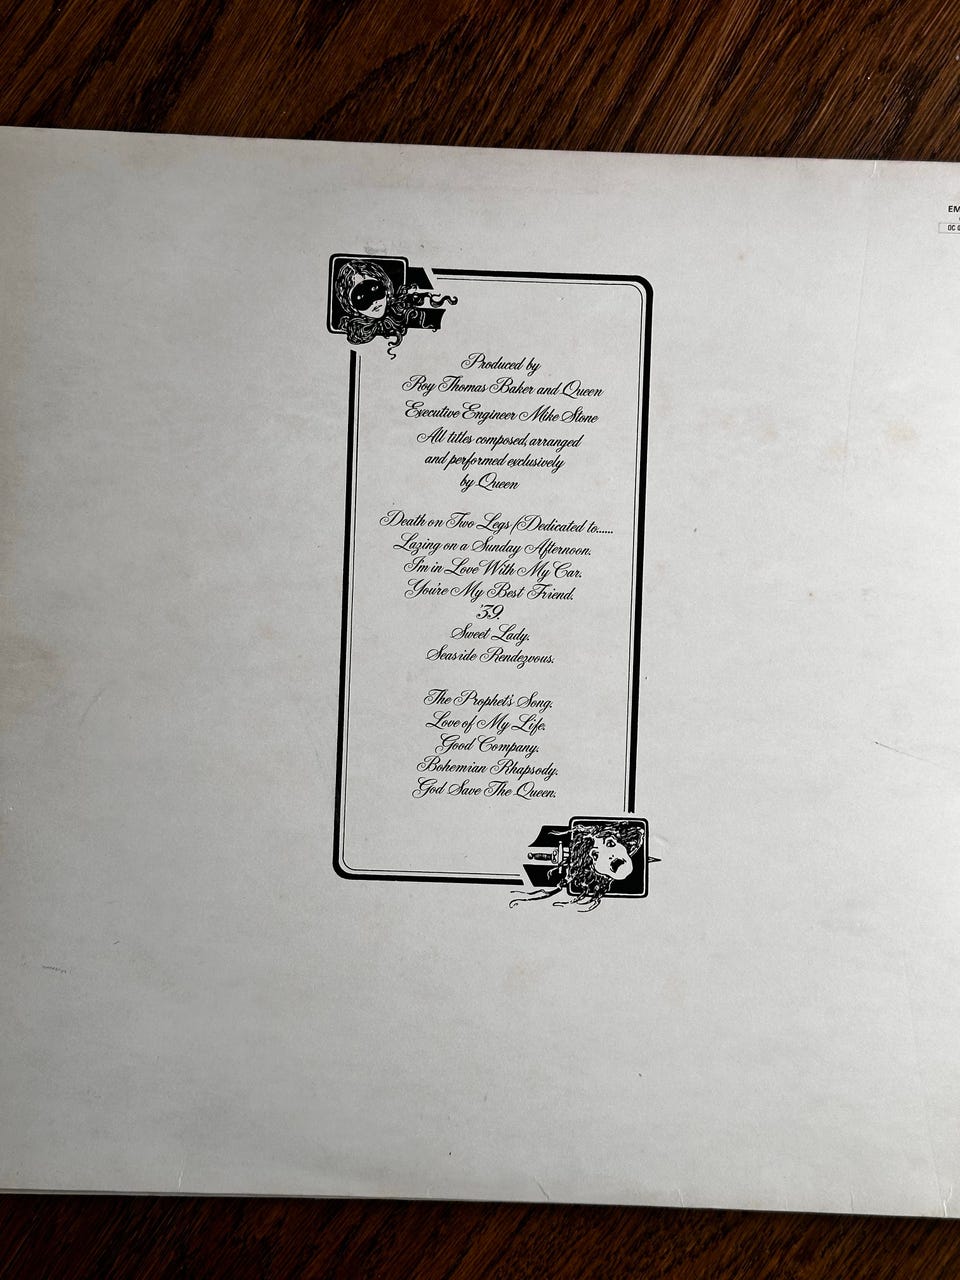 EM
OC 0
Produced by
Roy Thomas Baker and Queen
Executive Engineer Mike Stone
All titles composed, arranged
and performed exclusively
by Queen
Death on Two Legs (Dedicated to......
Lazing on a Sunday Afternoon.
I'm in Love With My Car.
You're My Best Friend.
'39.
Sweet Lady.
Seaside Rendezvous.
The Prophet's Song.
Love of My Life.
Good Company.
Bohemian Rhapsody.
God Save The Queen.